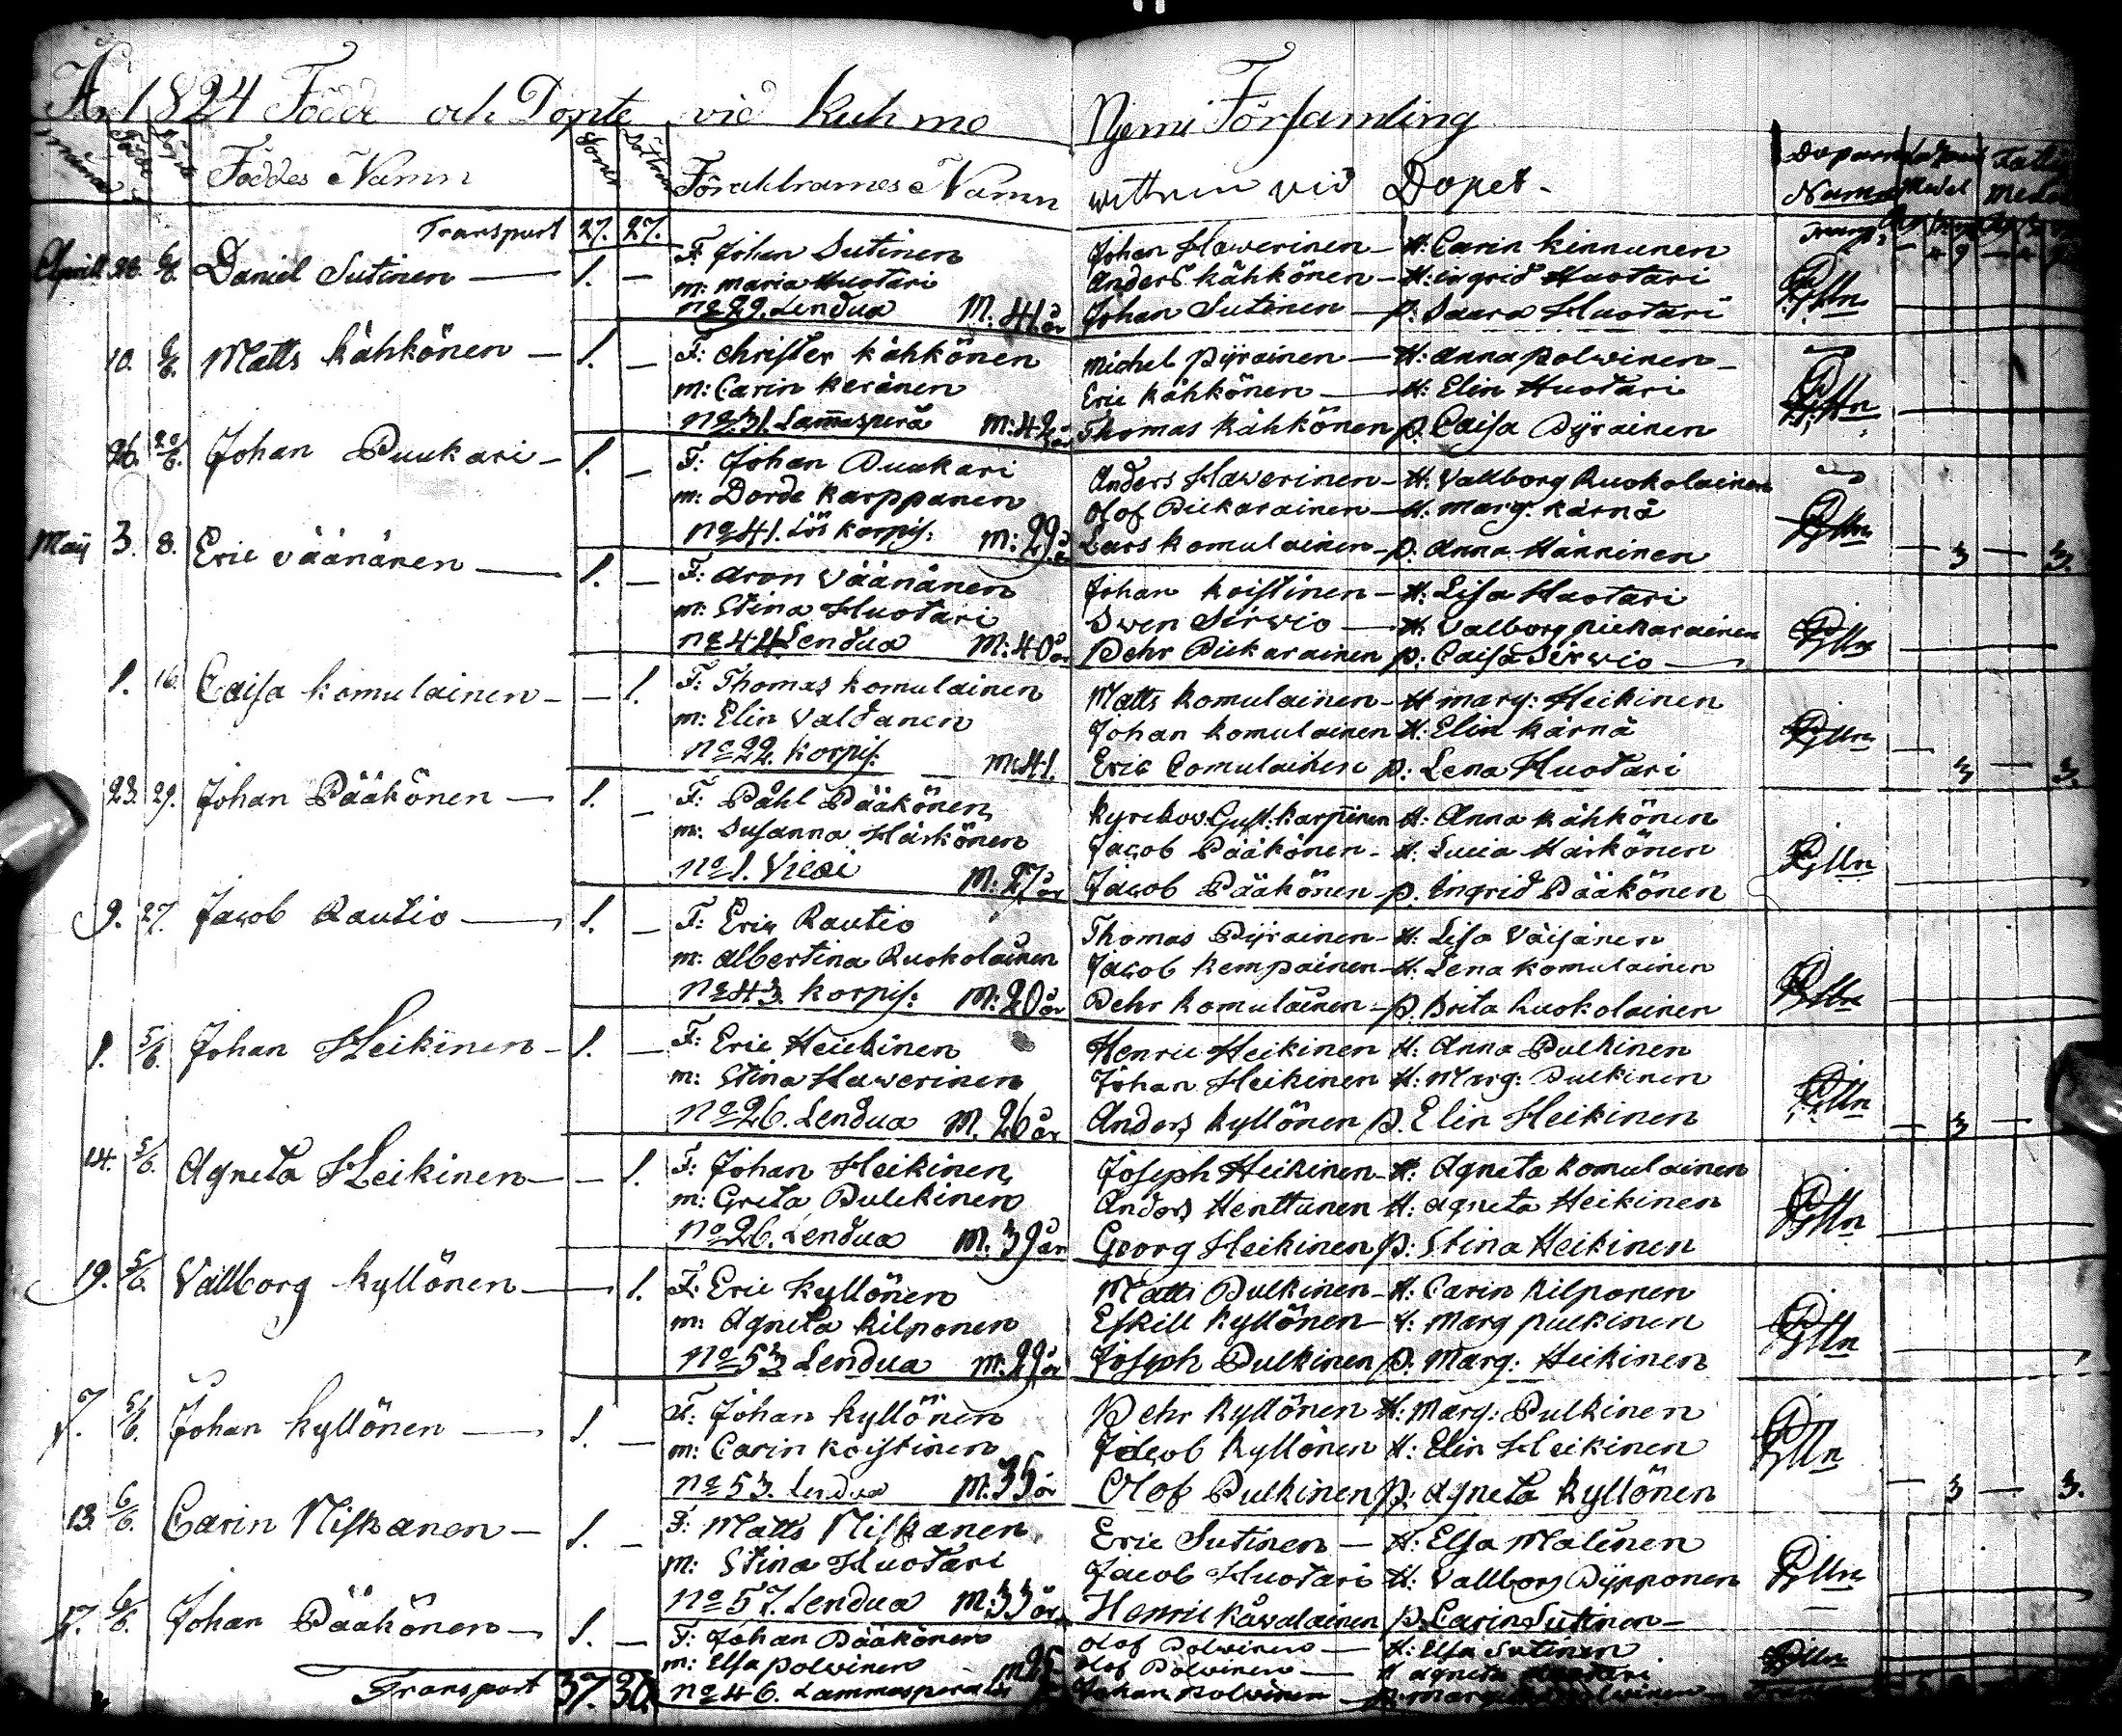 År 1824 Födde och Döpte vid Kuhmo Njemi Församling
Föddes Namn Föräldrarnes Namn wittnen vid Dopet
Namn
Transport 27. 27.
Aprill 28. 6/6. Daniel Sutinen 1. — F: Johan Sutinen Johan Hawerinen — H: Carin Kinnunen
m: Maria Huotari Anders Kähkönen — H: Ingrid Huotari
No 29. Lendua M: 41 år Johan Sutinen — p: Saara Huotari
10. 6/6. Matts Kähkönen — 1. — F: Christer Kähkönen Michel Pyrainen — H: Anna Polwinen
m: Carin Keränen Eric Kähkönen — H: Elin Huotari
No 31. Lam̄asperä M: 42 år Thomas Kähkönen p. Caisa Pyrainen
26. 20/6. Johan Puukari — 1. — F: Johan Puukari Anders Hawerinen — H: Vallborg Ruokolainen
m: Dorde Karppanen Olof Piekarainen — H. Marg. Kärnä
No 41. Lös Korpis: M: 29 år Lars Komulainen — p. Anna Hänninen — 3 — 3.
Maij 3. 8. Eric Väänänen — 1. — F: Aron Väänänen Johan Koistinen — H: Lisa Huotari
m: Stina Huotari Swen Sirwio — H: Valborg Piekarainen
No 44 Lendua M: 40 år Pehr Piekarainen p: Caisa Sirwio
1. 16. Caisa Komulainen — — 1. F: Thomas Komulainen Matts Komulainen — H Marg: Heikinen
m: Elin Valdanen Johan Komulainen H: Elin Kärnä
No 22. Korpis: M: 41. Eric Comulainen p: Lena Huotari — 3 — 3.
23. 29. Johan Pääkönen — 1. — F: Påhl Pääkönen Kyrckov: Gust: Karpinen H: Anna Kähkönen
m: Susanna Härkönen Jacob Pääkönen — H: Lucia Härkönen
No 1. Viexi M: 27 år Jacob Pääkönen p. Ingrid Pääkönen
9. 27. Jacob Rautio — 1. — F: Eric Rautio Thomas Pyrainen — H: Lisa Väisänen
m: Albertina Ruokolainen Jacob Kempainen — H: Lena Komulainen
No 43. Korpis: M: 20 år Pehr Komulainen — p. Brita Luokolainen
1. 5/6. Johan Heikinen — 1. — F: Eric Heikinen Henric Heikinen H: Anna Pulkinen
m: Stina Hawerinen Johan Heikinen H: Marg: Pulkinen
No 26. Lendua M. 26 år Anders Kyllönen p. Elin Heikinen — 3 —
14. 5/6. Agneta Heikinen — — 1. F: Johan Heikinen Joseph Heikinen — H: Agneta Komulainen
m: Greta Pulckinen Anders Henttunen H: Agneta Heikinen
No 26. Lendua M. 39 år Georg Heikinen p: Stina Heikinen
19. 5/6. Vallborg Kyllönen — 1. F: Eric Kyllönen Matts Pulkinen — H: Carin Kilponen
m: Agneta Kilponen Eskill Kyllönen — H: Marg Pulkinen
No 53 Lendua M. 29 år Joseph Pulkinen p. Marg: Heikinen
7. 5/6. Johan Kyllönen — 1. — F: Johan Kyllönen Pehr Kyllönen H: Marg: Pulkinen
m: Carin Koistinen Jacob Kyllönen H: Elin Heikinen
No 53. Lendua M. 35 år Olof Pulkinen p. Agneta Kyllönen — 3 — 3.
13. 6/6. Carin Niskanen — 1. — F: Matts Niskanen Eric Sutinen — H: Elsa Malinen
m: Stina Huotari Jacob Huotari H: Vallborg Pypponen
No 57. Lendua M: 33 år Henric Käwalainen p. Carin Sutinen —
17. 6/6. Johan Pääkönen — 1. — F: Johan Pääkönen Olof Polwinen — H: Elsa Sutinen
m: Elsa Polwinen Olof Polwinen — H Agneta
Transport 37. 30. No 46. Lammasperä Johan Polwinen